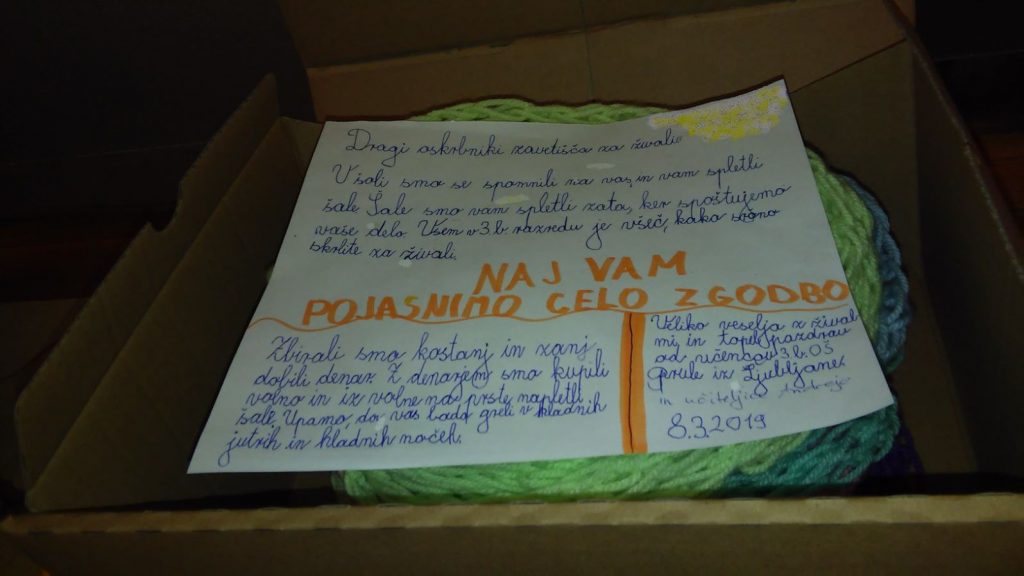 Dragi oskrbniki zavetišča za živali.
V šoli smo se spomnili na vas, in vam spletli
šale. Šale smo vam spletli zato, ker spoštujemo
vaše delo. Vsem v 3.b. razredu je všeč, kako
skrbite za živali.
NAJ VAM
POJASNIMO CELO ZGODBO
Zbirali smo kostanj in zanj
dobili denar. Z denarjem smo kupili
volno in iz volne na prste napletli
šale. Upamo, da vas bodo greli v hladnih
jutrih in hladnih nočeh.
Veliko veselja z žival
mi, in topel pozdrav
od učencev 3.b. OŠ
Prule iz Ljubljane.
in učiteljice
8.3.2019